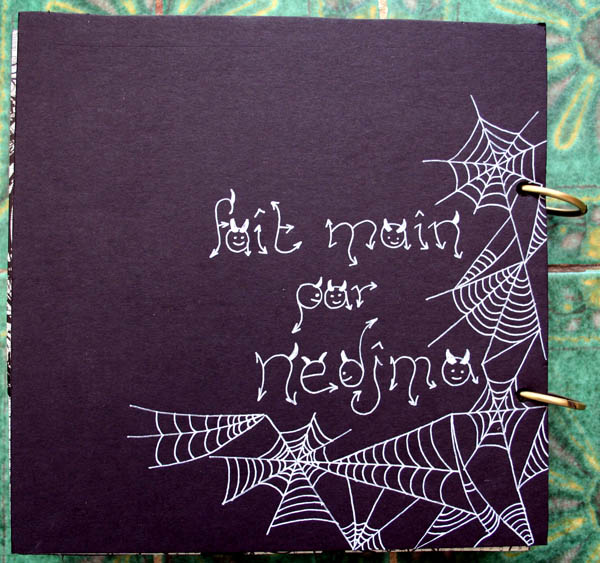 fait main
par
nedjma